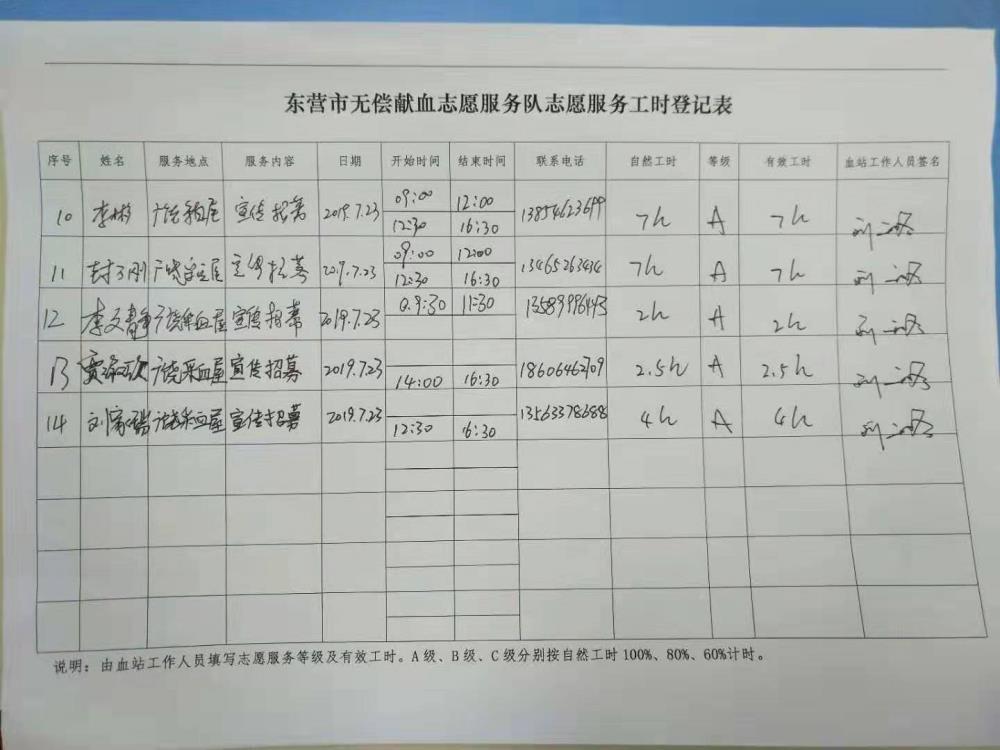 东营市无偿献血志愿服务队志愿服务工时登记表
序号 姓名 服务地点 服务内容 日期 开始时间 结束时间 联系电话 自然工时 等级 有效工时 血站工作人员签名
10 宣传招募 2019.7.23 09:00 12:00 13854623699 7h A 7h
12:30 16:30
11 宣传招募 2019.7.23 09:00 12:00 13465263434 7h A 7h
12:30 16:30
12 李文静 广饶采血屋 宣传招募 2019.7.23 0.9:30 11:30 2h A 2h
13 广饶采血屋 宣传招募 2019.7.23 14:00 16:30 18606462709 2.5h A 2.5h
14 广饶采血屋 宣传招募 2019.7.23 12:30 16:30 13563378688 4h A 4h
说明:由血站工作人员填写志愿服务等级及有效工时。A级、B级、C级分别按自然工时100%、80%、60%计时。